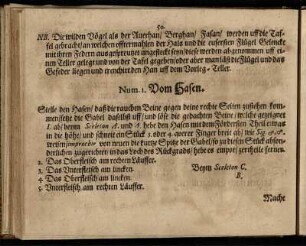 50.
NB. Die wilden Vögel als der Auerhan/ Berghan/ Fasan/ werden uff die Taf-
fel gebracht/ an welchen offtermahlen der Hals und die eusersten Flügel Gelencke
mit ihren Federn ausgespreutet angesteckt seyn/ diese werden abgenommen uff ei-
nen Teller gelegt und von der Tafel gegeben/ oder aber man läst die Flügel und das
Gefieder liegen und tranchiert den Han uff dem Vorleg-Teller.
Num. 1. Vom Hasen.
Stelle den Hasen/ daß die rauchen Beine gegen deine rechte Seiten zustehen kom-
men/ setze die Gabel daselbst uff/ und löse die gedachten Beine/ welche gezeignet
1. als beym Sceleton C. und B. hebe den Hasen mit dem fördersten Theil etwas
in die höhe/ und schneide ein Stück 3. oder 4. querer Finger breit ab/ wie
weisen/ von neuen die kurtze Spitze der Gabel/ so zu diesem Stück abson-
derlichen zugerichtet/ in das Loch des Rückgrads/ hebe es empor/ zertheile fernen.
2. Das Oberfleisch am rechten Läuffer.
3. Das Unterfleisch am lincken.
4. Das Oberfleisch am lincken.
5. Unterfleisch am rechten Läuffer.
Beym Sceleton C,
B,
Mache